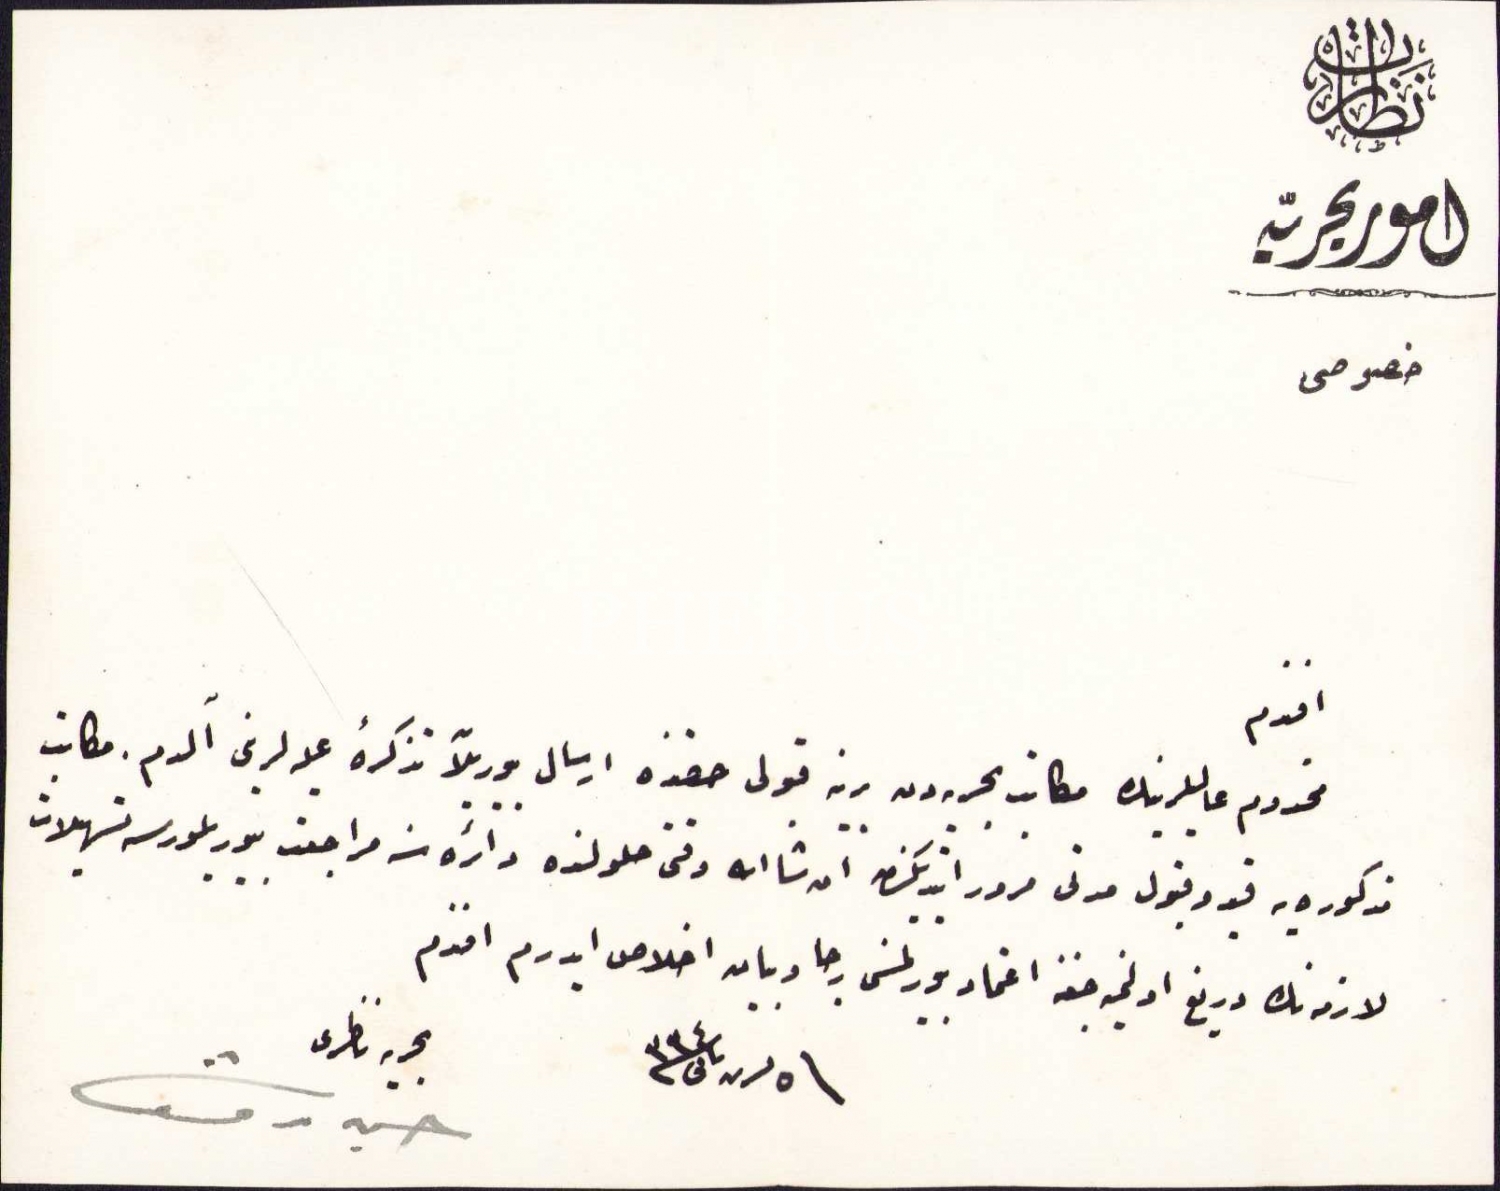 نظارت
امور بحریه
خصوصی
افندم
مخدوم عالیلرینك مكاتب بحریه‌دن برینه قبولی حقنده ارسال بوریلان تذكرۀ علیه‌لرینی آلدم. مكاتب
مذكوره‌یه قید و قبول مدتی مرور ایتدیكندن ان شاالله وقتی حلولنده دائره‌سنه مراجعت بیوریلورسه تسهیلات
لازمه‌نك دریغ اولنمیه‌جغنه اعتماد بیورلمسنی رجا و بیان اخلاص ایدرم افندم
١٥ تشرین ثانی ٣٣٤
بحریه ناظری